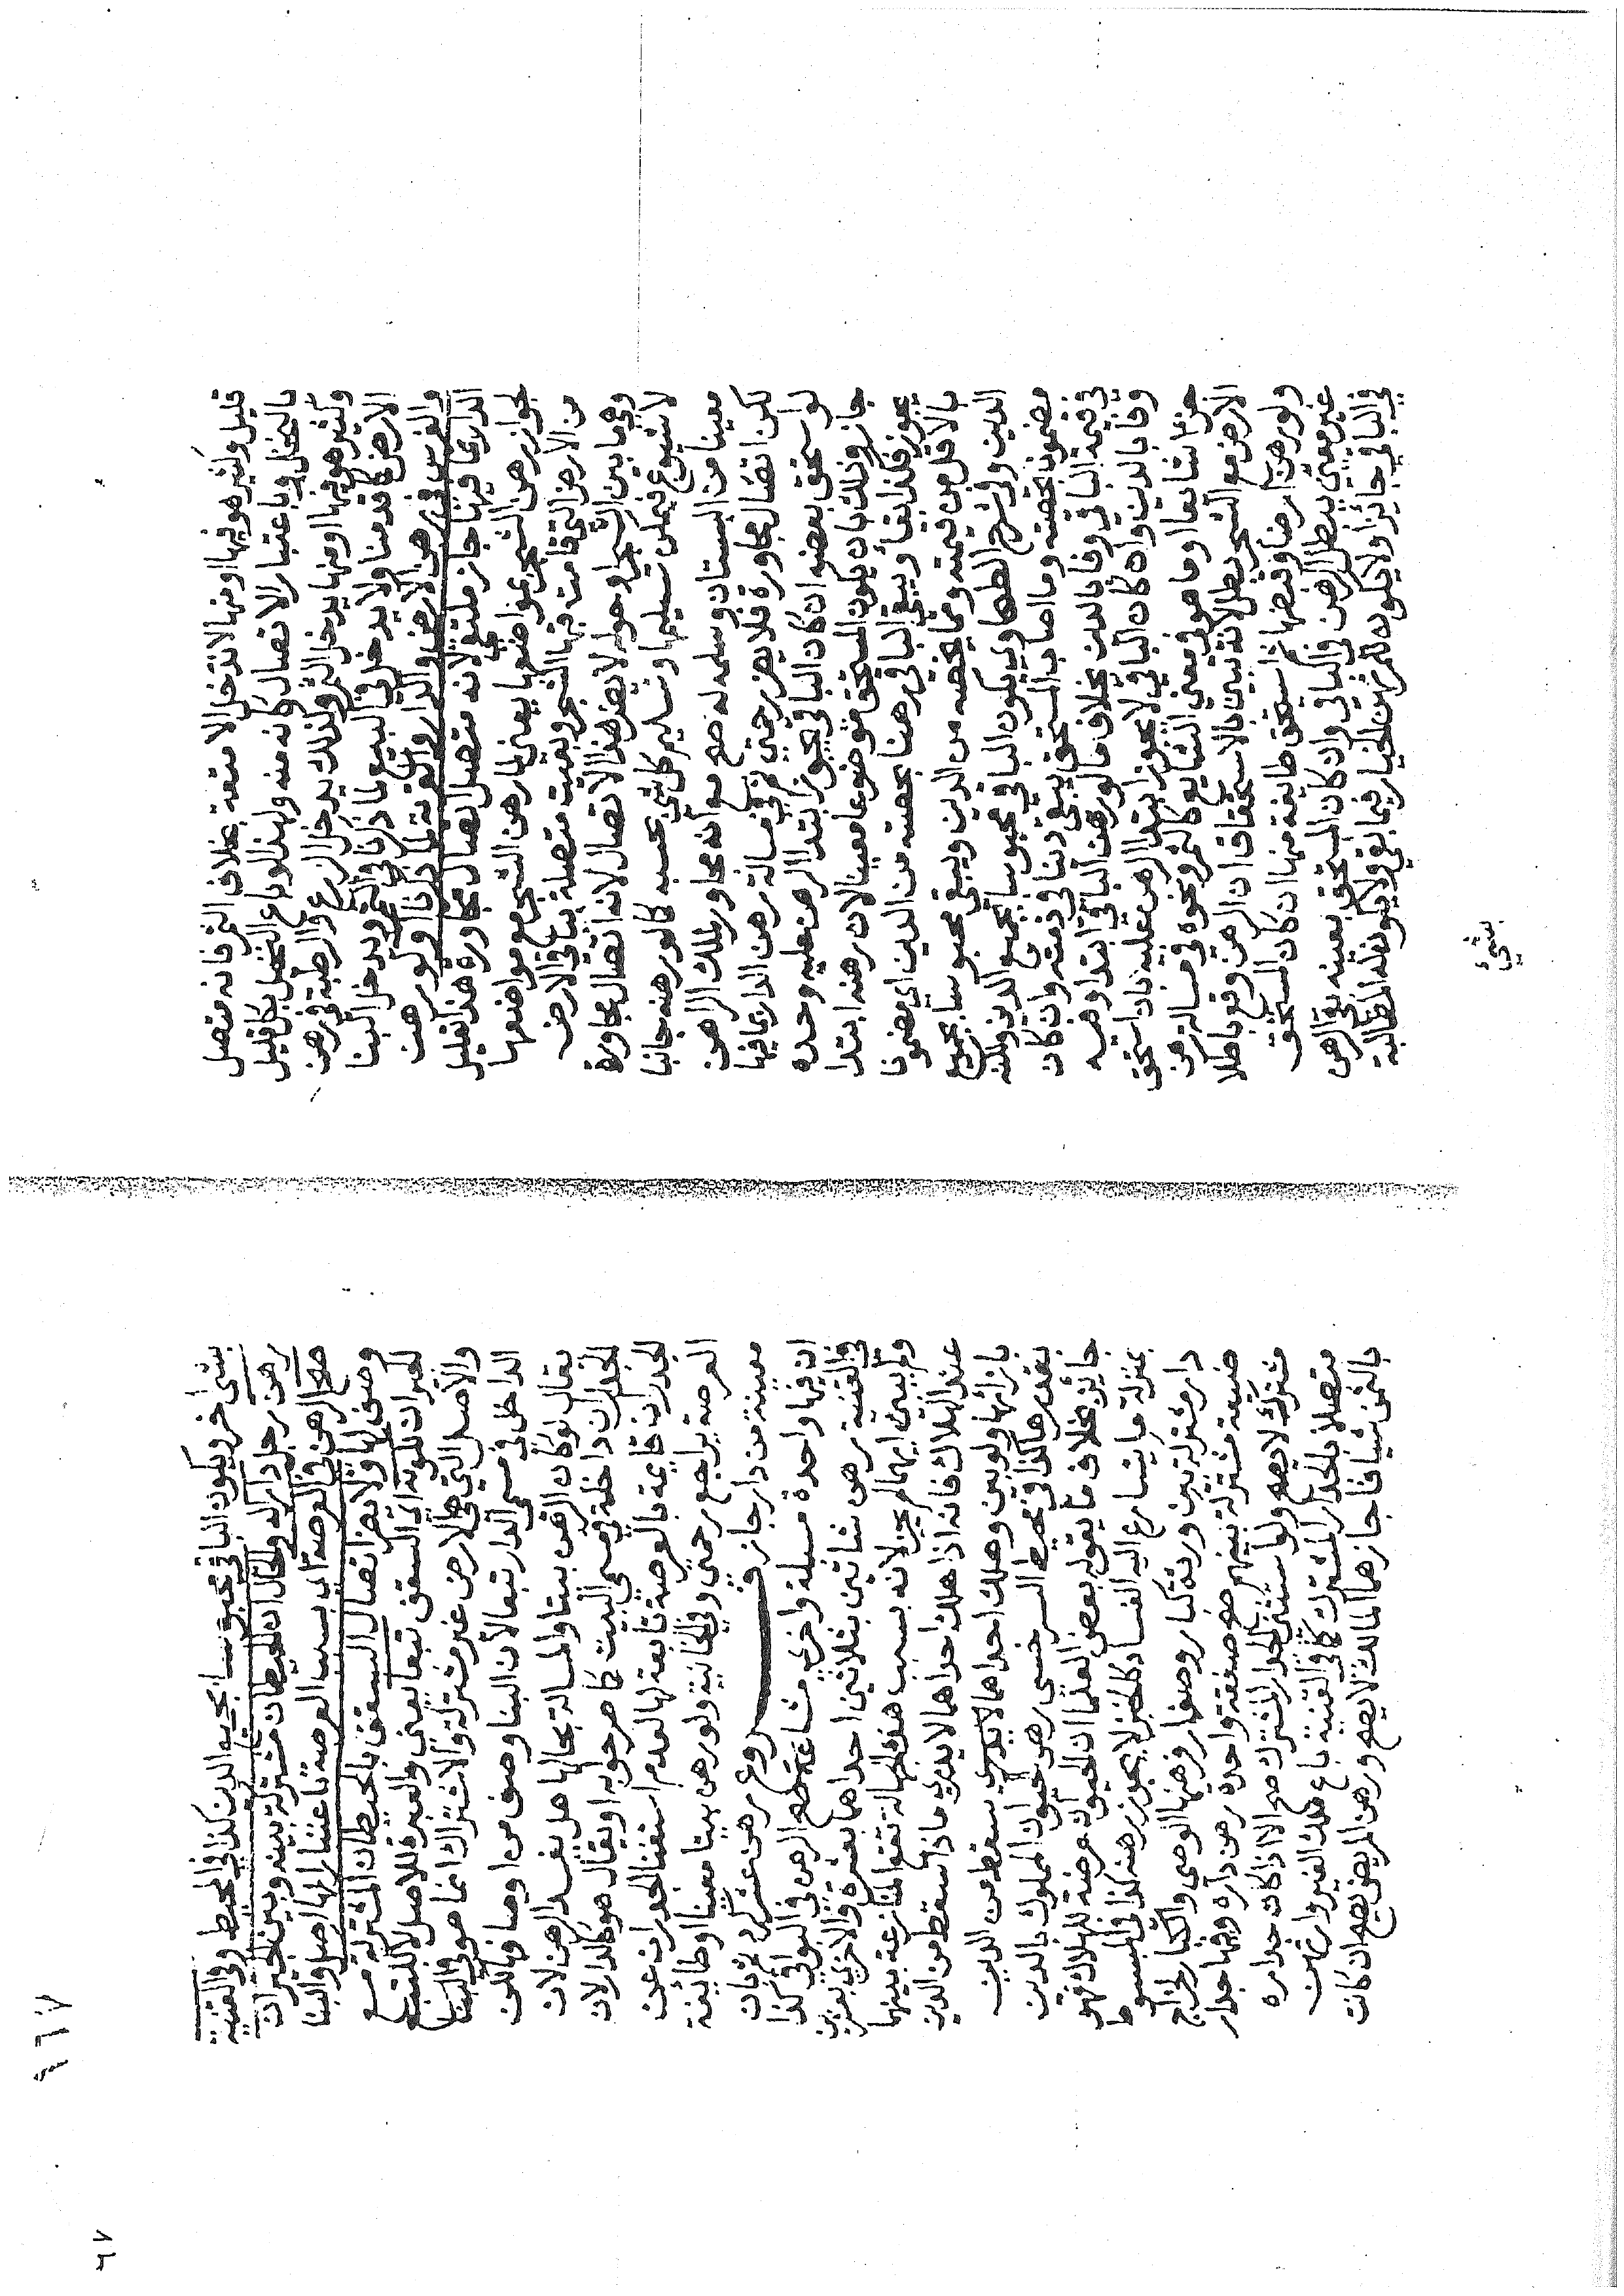 قليل وكثير هو فيها او منها لا تدخل الامتعة بخلاف الثمر فانه متصل
بالنخل وباعتبار الاتصال كانه منه ولهذا لو باع النخل بكل قليل
وكثير هو فيها او منها يدخل الثمر ولذلك يدخل الزرع والرطبة في رهن
الارض كما قدمنا ولا يدخل في البيع لما ذكرنا في الثمر ويدخل البنا
والغرس في رهن الارض والدار والقرية لما ذكرنا ولو رهن
الدار بما فيها جاز ملتقى لانه متصل اتصال مجاورة هذا تعليل
جواز رهن الشجر بمواضعها يعني لما رهن الشجر مع مواضعها
من الارض التي قامت فيها الشجر وبقيت متصلة بباقي الارض
وهي ما بين الشجر او حوله لا يضر هذا الاتصال لانه اتصال مجاورة
لا شيوع فيمكن تسليمها وتسليم كل شي بحسبه كما لو رهنه جانبا
معينا من البستان وسلمه له صح مع انه مجاور لملك الراهن
لكن اتصال مجاورة فلا يضر رحمتي في مسالة رهن الدار بما فيها
لو استحق بعضه ان كان الباقي يجوز ابتداء الرهن عليه وحده
جاز وذلك بان يكون المستحق موضوعا معينا لان رهنه ابتدا
يجوز فكذا بقاء ويبقى الباقي رهنا بحصته من الدين اي مضمونا
بالاقل من قيمته ومما يخصه من الدين ويبقى محبوسا بجميع
الدين وفي شرح الطحاوي يكون الباقي محبوسا بجميع الدين ولكنه
مضمونا بحصته وما اصاب المستحق يبقى دينا في ذمته وان كان
في قيمة الباقي وفا بالدين بخلاف ما لو رهن الباقي ابتدا وفيه
وفا بالدين وان كان الباقي لا يجوز ابتداء الرهن عليه بان استحق
جزا شايعا او ما هو في معنى الشايع كالثمر ونحوه في مسالة رهن
الارض مع الشجر بطل لانه تبين بالاستحقاق ان الرهن وقع باطلا
ولو رهن ارضا وقبضها ثم استحق طايفة منها ان كان المستحق
غير معين بطل الرهن في الباقي وان كان المستحق بعينه بقي الرهن
في الباقي جايزا ولا يكون للمرتهن الخيار فيما بقي ولا يكون له المطالبة
بشيء
بشي اخر ويكون الباقي محبوسا بجميع الدين كذا في المحيط وفي القنية
رهن رجل دارا له والحال ان الحيطان مشتركة بينه وبين الجيران
صح الرهن في العرصة اي بسبب العرصة باعتبار انها اصل والبنا
وصف لها ولا يضر اتصال السقف بالحيطان المشتركة مع
الجيران لكونه اي السقف تبعا يعني والعبرة للاصل لا للتبع
والاصل التي هي الارض غير مشتركة والاشتراك انما هو في البنا
الداخل في مسمى الدار تبعا لان البنا وصف من اوصافها لكن
يقال لو كان الرهن بيتا والمسالة بحالها هل يفسد الرهن لان
الجدران داخلة في مسمى البيت كما صرحوا به او يقال هو كالدار لان
الجدران قايمة بالعرصة تابعة لها لعدم استغنا الجدران عن
العرصة يراجع رحمتي وفي الخانية ولو رهن بيتا معينا او طائفة
معينة من دار جاز فروع رهن عشر كرم بان
ان فيها واحدة مسبلة واخرى مشاعة صح الرهن في البواقي كذا
في القنية رهن شاتين بثلاثين احداهما بعشرة والاخرى بعشرين
ولم يبين ايهما لم يجز لانه بسبب هذه الجهالة تقع المنازعة بينهما
عند الهلاك فانه اذا هلك احداهما لا يدري ماذا سقط من الدين
بازائها ولو بين وهلك احداهما لا يدري سقط من الدين
بقدرها كذا في محيط السرخسي رهن حيوان المملوك بالدين
جايز بخلاف ما يقوله بعض العلما ان الحيوان عرضة للهلاك فهو
بمنزلة ما يتسارع اليه الفساد كالخبز لا يجوز رهنه كذا في المبسوط
دار مشتركة بين ورثة كبار وصغار رهنها الوصي والكبار بخراج
ضيعة مشتركة بينهم صح صفقة واحدة رهن داره وفيها جدار
مشترك لا يصح ولو استثنى الجدار المشترك صح الا اذا كان جداره
متصلا بالجدار المشترك كما في القنية باع ملك الغير وارتهن
بالثمن شيا فاجازهما المالك لا يصح ورهن المريض يصح ان كانت
٤٦٧
٦٧